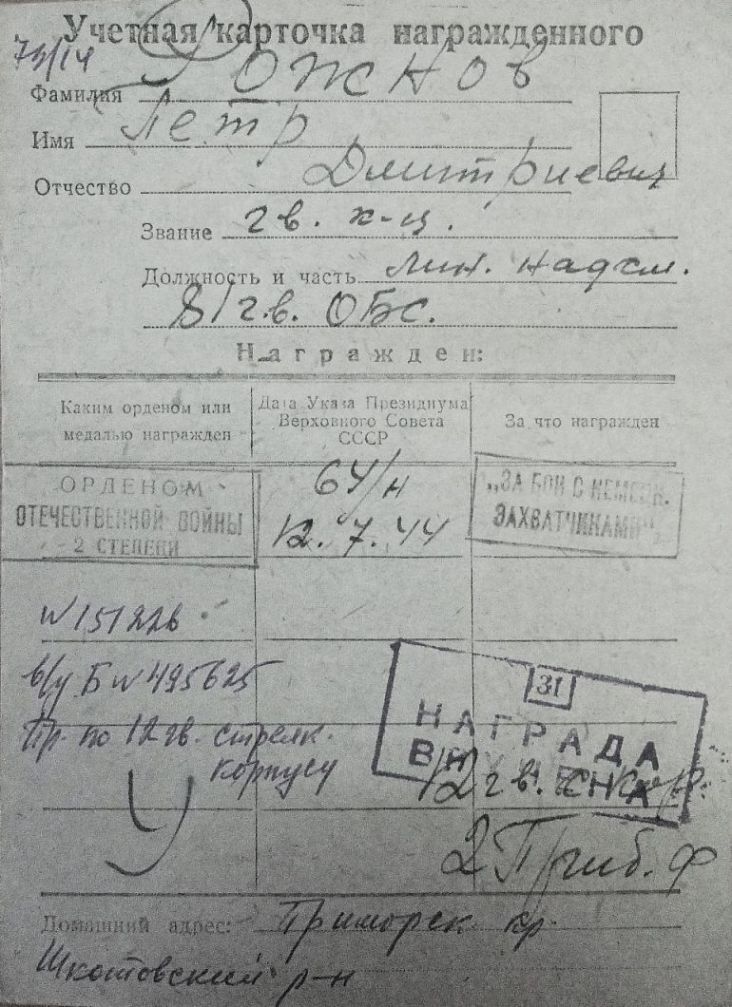 Учетная карточка награжденного
73/14
Фамилия Ожнов
Имя Петр
Отчество Дмитриевич
Звание гв. к-ц.
Должность и часть лин. надсм.
81 гв. ОБС.
Награжден:
Каким орденом или медалью награжден
Дата Указа Президиума Верховного Совета СССР
За что награжден
ОРДЕНОМ
ОТЕЧЕСТВЕННОЙ ВОЙНЫ
2 СТЕПЕНИ
64/н
12.7.44
„ЗА БОИ С НЕМЕЦК.
ЗАХВАТЧИКАМИ".
N 151226
в/у Б N 495625
Пр. по 12 гв. стрелк.
корпусу
31
НАГРАДА
ВРУЧЕНА
12 гв. с. кор.
2 Приб. ф
Домашний адрес: Приморск. кр.
Шкотовский р-н